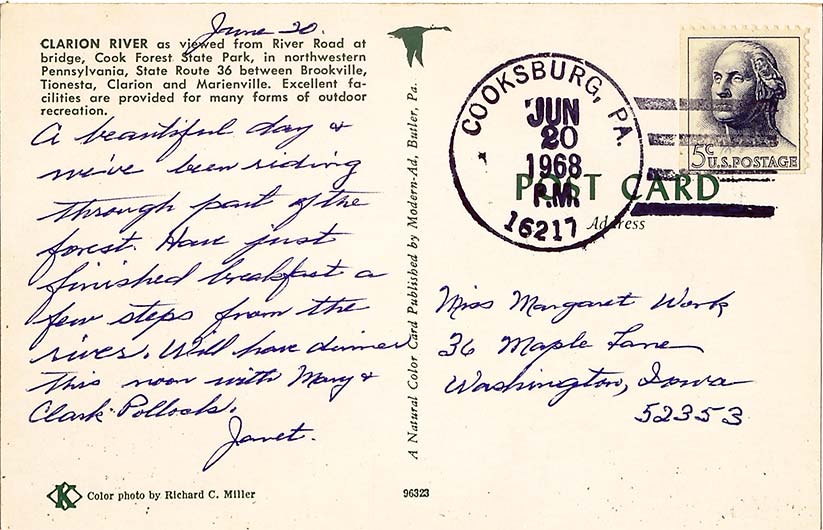 June 20.
CLARION RIVER as viewed from River Road at
bridge, Cook Forest State Park, in northwestern
Pennsylvania, State Route 36 between Brookville,
Tionesta, Clarion and Marienville. Excellent fa-
cilities are provided for many forms of outdoor
recreation.
A beautiful day &
we've been riding
through part of the
forest. Have just
finished breakfast a
few steps from the
river. Will have dinner
this noon with Mary &
Clark Pollock.
Janet.
K Color photo by Richard C. Miller
A Natural Color Card Published by Modern-Ad, Butler, Pa.
96323
COOKSBURG, PA.
JUN
20
1968
P.M.
16217
5c
U.S. POSTAGE
POST CARD
Address
Miss Margaret Work
36 Maple Lane
Washington, Iowa
52353